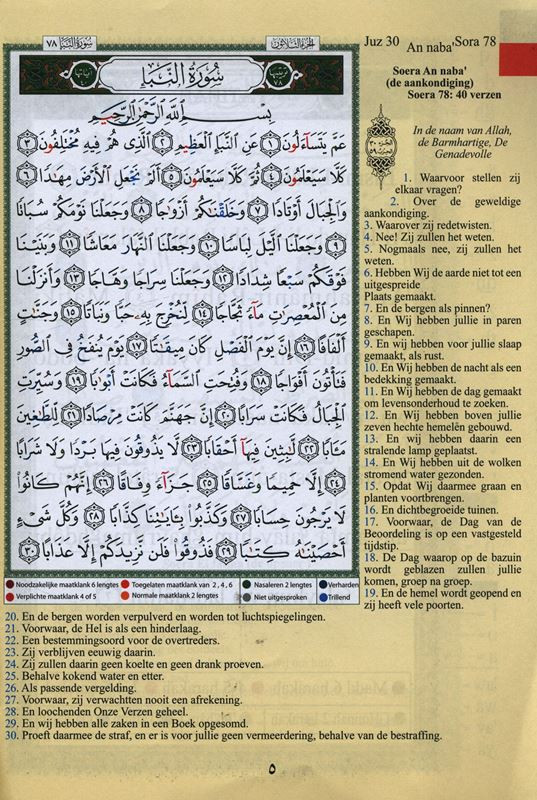 Juz 30 An naba' Sora 78
سُورَةُ النَّبَإِ ٧٨
الجُزءُ الثَّلَاثُونَ
سُورَةُ النَّبَإِ
بِسْمِ ٱللَّهِ ٱلرَّحْمَٰنِ ٱلرَّحِيمِ
عَمَّ يَتَسَآءَلُونَ ١ عَنِ ٱلنَّبَإِ ٱلْعَظِيمِ ٢ ٱلَّذِى هُمْ فِيهِ مُخْتَلِفُونَ ٣
كَلَّا سَيَعْلَمُونَ ٤ ثُمَّ كَلَّا سَيَعْلَمُونَ ٥ أَلَمْ نَجْعَلِ ٱلْأَرْضَ مِهَٰدًا ٦
وَٱلْجِبَالَ أَوْتَادًا ٧ وَخَلَقْنَٰكُمْ أَزْوَٰجًا ٨ وَجَعَلْنَا نَوْمَكُمْ سُبَاتًا
٩ وَجَعَلْنَا ٱلَّيْلَ لِبَاسًا ١٠ وَجَعَلْنَا ٱلنَّهَارَ مَعَاشًا ١١ وَبَنَيْنَا
فَوْقَكُمْ سَبْعًا شِدَادًا ١٢ وَجَعَلْنَا سِرَاجًا وَهَّاجًا ١٣ وَأَنزَلْنَا
مِنَ ٱلْمُعْصِرَٰتِ مَآءً ثَجَّاجًا ١٤ لِّنُخْرِجَ بِهِۦ حَبًّا وَنَبَاتًا ١٥ وَجَنَّٰتٍ
أَلْفَافًا ١٦ إِنَّ يَوْمَ ٱلْفَصْلِ كَانَ مِيقَٰتًا ١٧ يَوْمَ يُنفَخُ فِى ٱلصُّورِ
فَتَأْتُونَ أَفْوَاجًا ١٨ وَفُتِحَتِ ٱلسَّمَآءُ فَكَانَتْ أَبْوَٰبًا ١٩ وَسُيِّرَتِ
ٱلْجِبَالُ فَكَانَتْ سَرَابًا ٢٠ إِنَّ جَهَنَّمَ كَانَتْ مِرْصَادًا ٢١ لِّلطَّٰغِينَ
مَـَٔابًا ٢٢ لَّٰبِثِينَ فِيهَآ أَحْقَابًا ٢٣ لَّا يَذُوقُونَ فِيهَا بَرْدًا وَلَا شَرَابًا
٢٤ إِلَّا حَمِيمًا وَغَسَّاقًا ٢٥ جَزَآءً وِفَاقًا ٢٦ إِنَّهُمْ كَانُوا۟
لَا يَرْجُونَ حِسَابًا ٢٧ وَكَذَّبُوا۟ بِـَٔايَٰتِنَا كِذَّابًا ٢٨ وَكُلَّ شَىْءٍ
أَحْصَيْنَٰهُ كِتَٰبًا ٢٩ فَذُوقُوا۟ فَلَن نَّزِيدَكُمْ إِلَّا عَذَابًا ٣٠
Noodzakelijke maatklank 6 lengtes Toegelaten maatklank van 2, 4, 6 Nasaleren 2 lengtes Verharden
Verplichte maatklank 4 of 5 Normale maatklank 2 lengtes Niet uitgesproken Trillend
Soera An naba'
(de aankondiging)
Soera 78: 40 verzen
In de naam van Allah,
de Barmhartige, De
Genadevolle
1. Waarvoor stellen zij
elkaar vragen?
2. Over de geweldige
aankondiging.
3. Waarover zij redetwisten.
4. Nee! Zij zullen het weten.
5. Nogmaals nee, zij zullen het
weten.
6. Hebben Wij de aarde niet tot een
uitgespreide
Plaats gemaakt.
7. En de bergen als pinnen?
8. En Wij hebben jullie in paren
geschapen.
9. En wij hebben voor jullie slaap
gemaakt, als rust.
10. En Wij hebben de nacht als een
bedekking gemaakt.
11. En Wij hebben de dag gemaakt
om levensonderhoud te zoeken.
12. En Wij hebben boven jullie
zeven hechte hemelën gebouwd.
13. En wij hebben daarin een
stralende lamp geplaatst.
14. En Wij hebben uit de wolken
stromend water gezonden.
15. Opdat Wij daarmee graan en
planten voortbrengen.
16. En dichtbegroeide tuinen.
17. Voorwaar, de Dag van de
Beoordeling is op een vastgesteld
tijdstip.
18. De Dag waarop op de bazuin
wordt geblazen zullen jullie
komen, groep na groep.
19. En de hemel wordt geopend en
zij heeft vele poorten.
20. En de bergen worden verpulverd en worden tot luchtspiegelingen.
21. Voorwaar, de Hel is als een hinderlaag.
22. Een bestemmingsoord voor de overtreders.
23. Zij verblijven eeuwig daarin.
24. Zij zullen daarin geen koelte en geen drank proeven.
25. Behalve kokend water en etter.
26. Als passende vergelding.
27. Voorwaar, zij verwachtten nooit een afrekening.
28. En loochenden Onze Verzen geheel.
29. En wij hebben alle zaken in een Boek opgesomd.
30. Proeft daarmee de straf, en er is voor jullie geen vermeerdering, behalve van de bestraffing.
٥